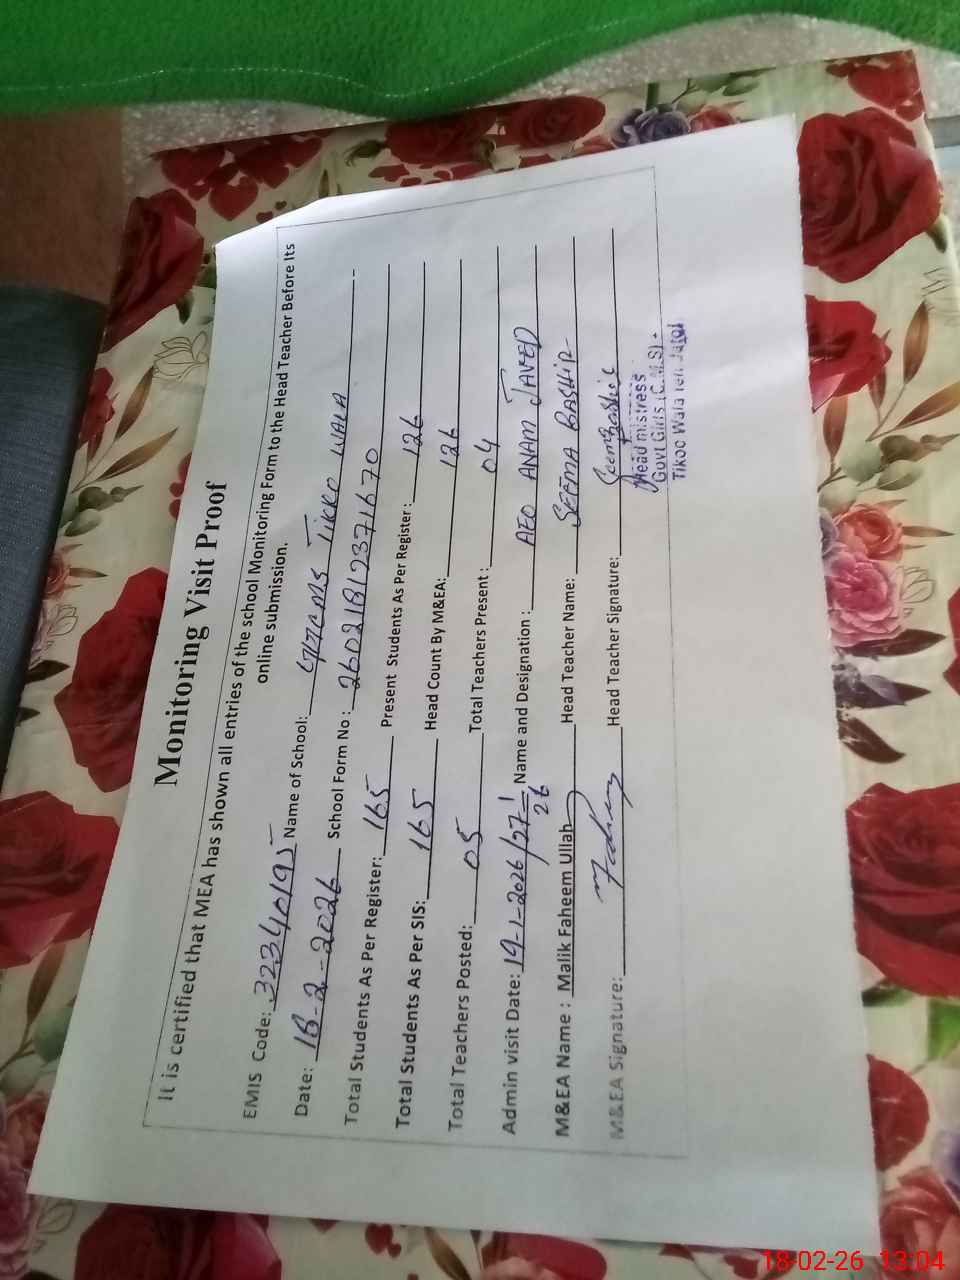 Monitoring Visit Proof
It is certified that MEA has shown all entries of the school Monitoring Form to the Head Teacher Before Its
online submission.
EMIS Code: 32340195 Name of School: GGCMS TIKKO WALA
Date: 18-2-2026 School Form No: 260218123716 70
Total Students As Per Register: 165 Present Students As Per Register: 126
Total Students As Per SIS: 165 Head Count By M&EA: 126
Total Teachers Posted: 05 Total Teachers Present: 04
Admin visit Date: 19-1-2026/27-1-26 Name and Designation: AEO ANAM JAVED
M&EA Name: Malik Faheem Ullah Head Teacher Name: SEEMA BASHIR
M&EA Signature: Faheem Head Teacher Signature: Seema Bashir
Head mistress
Govt Girls (C.M.S)
Tikoo Wala Teh: Jatoi
18-02-26 13:04